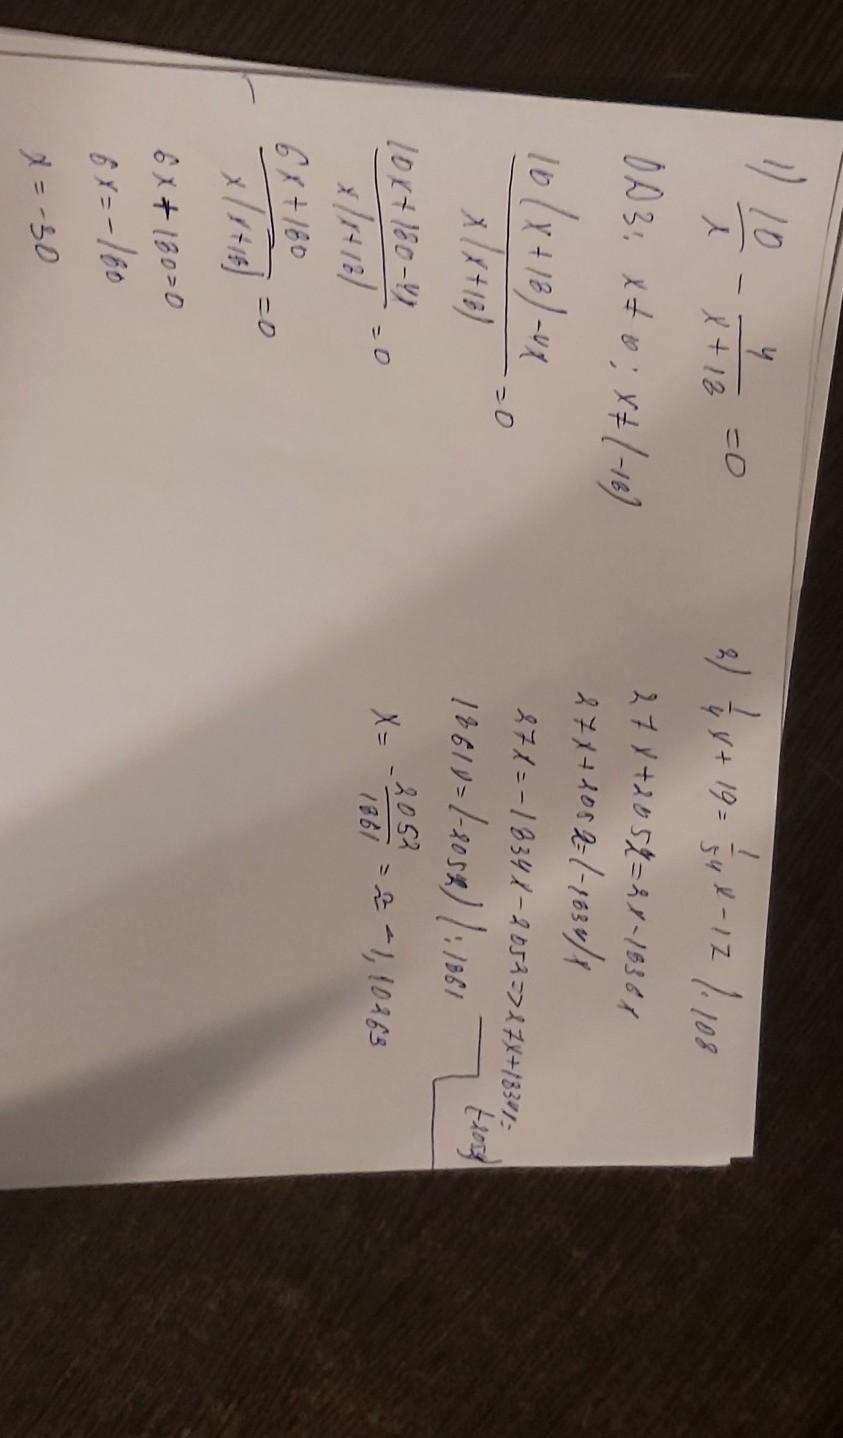 1) 10/x - 4/(x+18) = 0
ОДЗ: x ≠ 0; x ≠ (-18)
(10(x+18)-4x)/(x(x+18)) = 0
(10x+180-4x)/(x(x+18)) = 0
(6x+180)/(x(x+18)) = 0
6x+180=0
6x=-180
x=-30
2) 1/4 x+19= 1/54 x-17 |·108
27x+2052=2x-1836x
27x+2052=(-1834)x
27x=-1834x-2052=>27x+1834x=
(-2052)
1861x=(-2052) |:1861
x= -2052/1861 = ≈ -1,10263